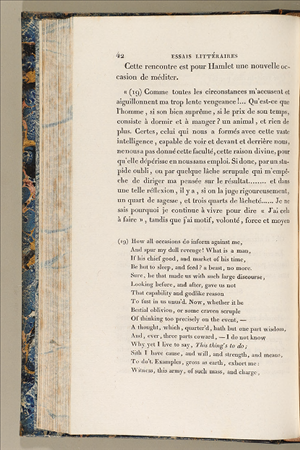 42 ESSAIS LITTÉRAIRES
Cette rencontre est pour Hamlet une nouvelle oc-
casion de méditer.
« (19) Comme toutes les circonstances m'accusent et
aiguillonnent ma trop lente vengeance!... Qu'est-ce que
l'homme, si son bien suprême, si le prix de son temps,
consiste à dormir et à manger? un animal, et rien de
plus. Certes, celui qui nous a formés avec cette vaste
intelligence, capable de voir et devant et derrière nous,
ne nous a pas donné cette faculté, cette raison divine, pour
qu'elle dépérisse en nous sans emploi. Si donc, par un stu-
pide oubli, ou par quelque lâche scrupule qui m'empê-
che de diriger ma pensée sur le résultat........ et dans
une telle réflexion, il y a, si on la juge rigoureusement,
un quart de sagesse, et trois quarts de lâcheté...... Je ne
sais pourquoi je continue à vivre pour dire « J'ai cela
à faire », tandis que j'ai motif, volonté, force et moyen
(19) How all occasions do inform against me,
And spur my dull revenge! What is a man,
If his chief good, and market of his time,
Be but to sleep, and feed? a beast, no more.
Sure, he that made us with such large discourse,
Looking before, and after, gave us not
That capability and godlike reason
To fust in us unus'd. Now, whether it be
Bestial oblivion, or some craven scruple
Of thinking too precisely on the event, —
A thought, which, quarter'd, hath but one part wisdom,
And, ever, three parts coward, — I do not know
Why yet I live to say, This thing's to do;
Sith I have cause, and will, and strength, and means,
To do't. Examples, gross as earth, exhort me:
Witness, this army, of such mass, and charge,